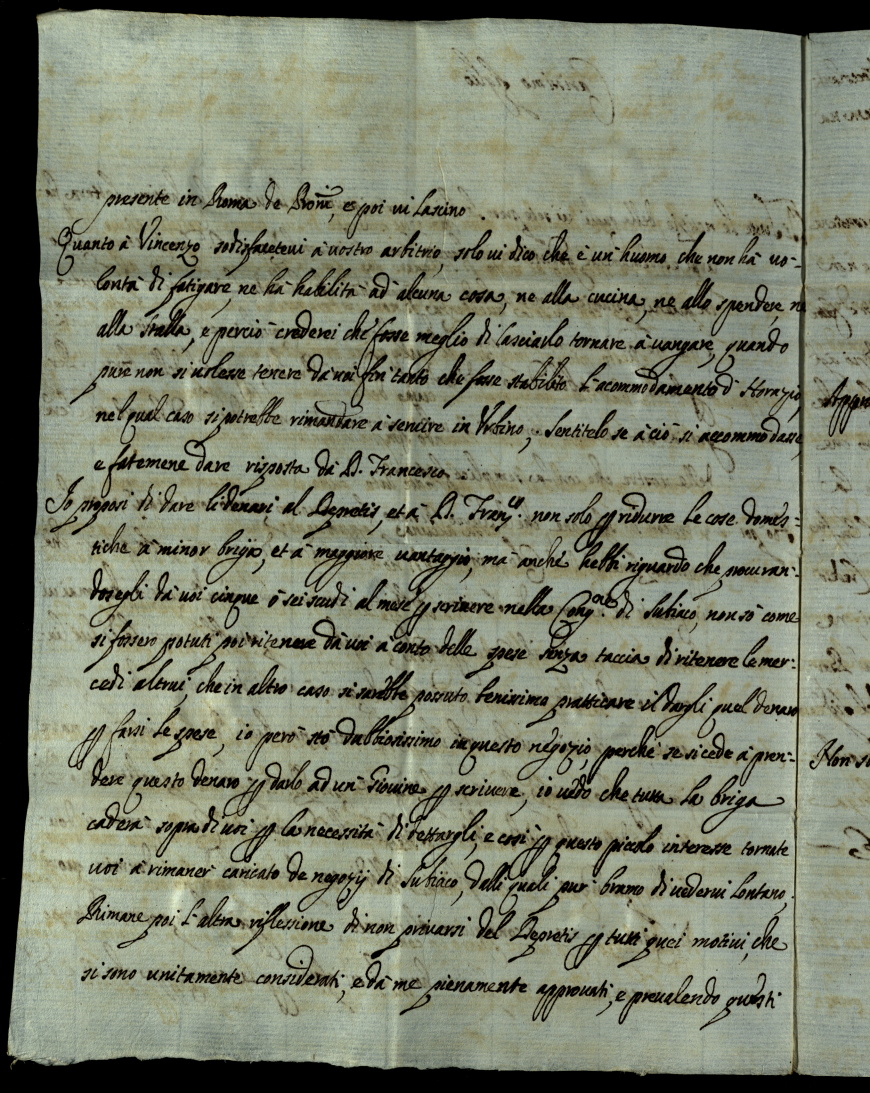 presente in Roma de Prom.ⁱ, e poi vi lascino.
Quanto à Vincenzo sodisfacetevi à vostro arbitrio, solo vi dico che è un huomo che non hà vo-
lontà di fatigare, ne hà habilità ad alcuna cosa, ne alla cucina, ne allo spendere, ne
alla stalla, e perciò crederei che fosse meglio di lasciarlo tornare à vangare, quando
pure non si volesse tenere dà voi fin tanto che fosse stabilito l'acommodamento d' Horazio,
nel qual caso si potrebbe rimandare à servire in Urbino, sentitelo se à ciò si accommodasse,
e fatemene dare risposta dà D. Francesco
Io proposi di dare li denari al Depretis, et à D. Fran.co non solo p ridurre le cose domes-
tiche à minor briga, et à maggiore vantaggio, mà anche hebbi riguardo che procuran-
dosegli dà voi cinque ò sei scudi al mese p scrivere nella Cong.ne di Subiaco, non sò come
si fossero potuti poi ritenere dà voi à conto delle spese senza taccia di ritenere le mer-
cedi altrui, che in altro caso si sarebbe possuto benissimo pratticare il dargli quel denaro
p farsi le spese, io però stò dubbiosissimo in questo negozio, perche se si cede à pren-
dere questo denaro p darlo ad un Giovine p scrivere, io vedo che tutta la briga
caderà sopra di voi p la necessità di dettargli, e così p questo piccolo interesse tornate
voi à rimaner caricato de negozij di Subiaco, dalli quali pur bramo di vedervi lontano.
Rimane poi l'altra riflessione di non privarsi del Depretis p tutti quei motivi, che
si sono unitamente considerati, e dà me pienamente approvati, e prevalendo questi
Non